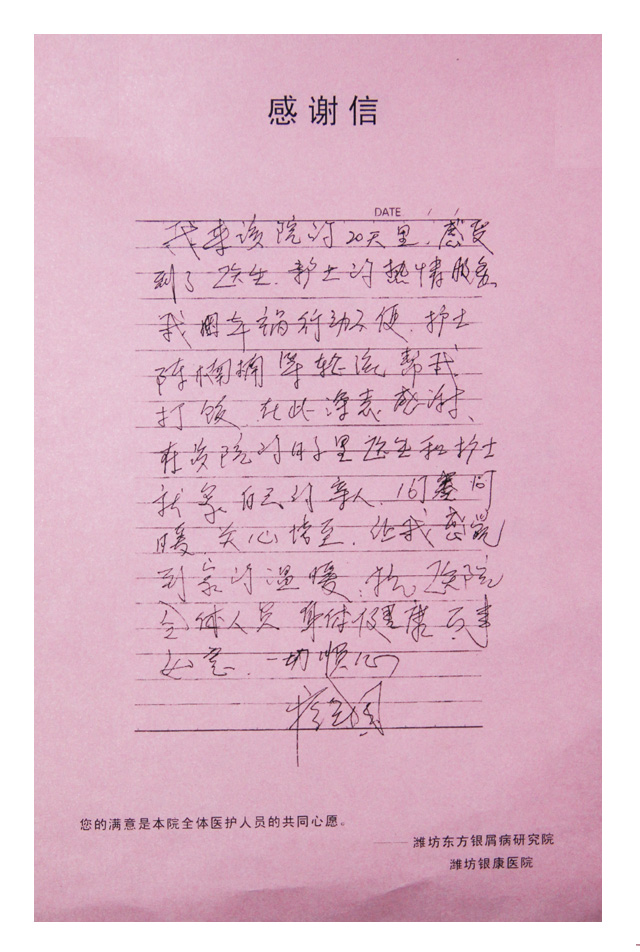 感谢信
DATE / /
我来该院的20天里,感受
到了医生、护士的热情服务
我因车祸行动不便,护士
陈楠楠等轮流帮我
打饭,在此深表感谢、
在该院的日子里医生和护士
就象自己的亲人,嘘寒问
暖,关心备至,让我感觉
到家的温暖,祝医院
全体人员身体健康 万事
如意,一切顺心
您的满意是本院全体医护人员的共同心愿。
——潍坊东方银屑病研究院
潍坊银康医院